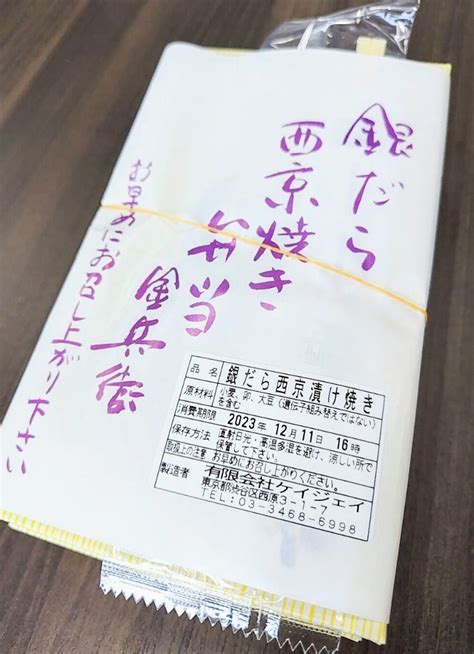 銀だら
西京焼き
弁当
金兵衛
お早めにお召し上がり下さい
品名 銀だら西京漬け焼き
原材料 小麦、卵、大豆（遺伝子組み替えではない）
を含む
消費期限 2023年 12月 11日 16時
保存方法 直射日光・高温多湿を避け、涼しい所で
保管して下さい。
取扱上の注意 お早めにお召し上がりください。
製造者 有限会社ケイジェイ
東京都渋谷区西原3-1-7
TEL:03-3468-6998